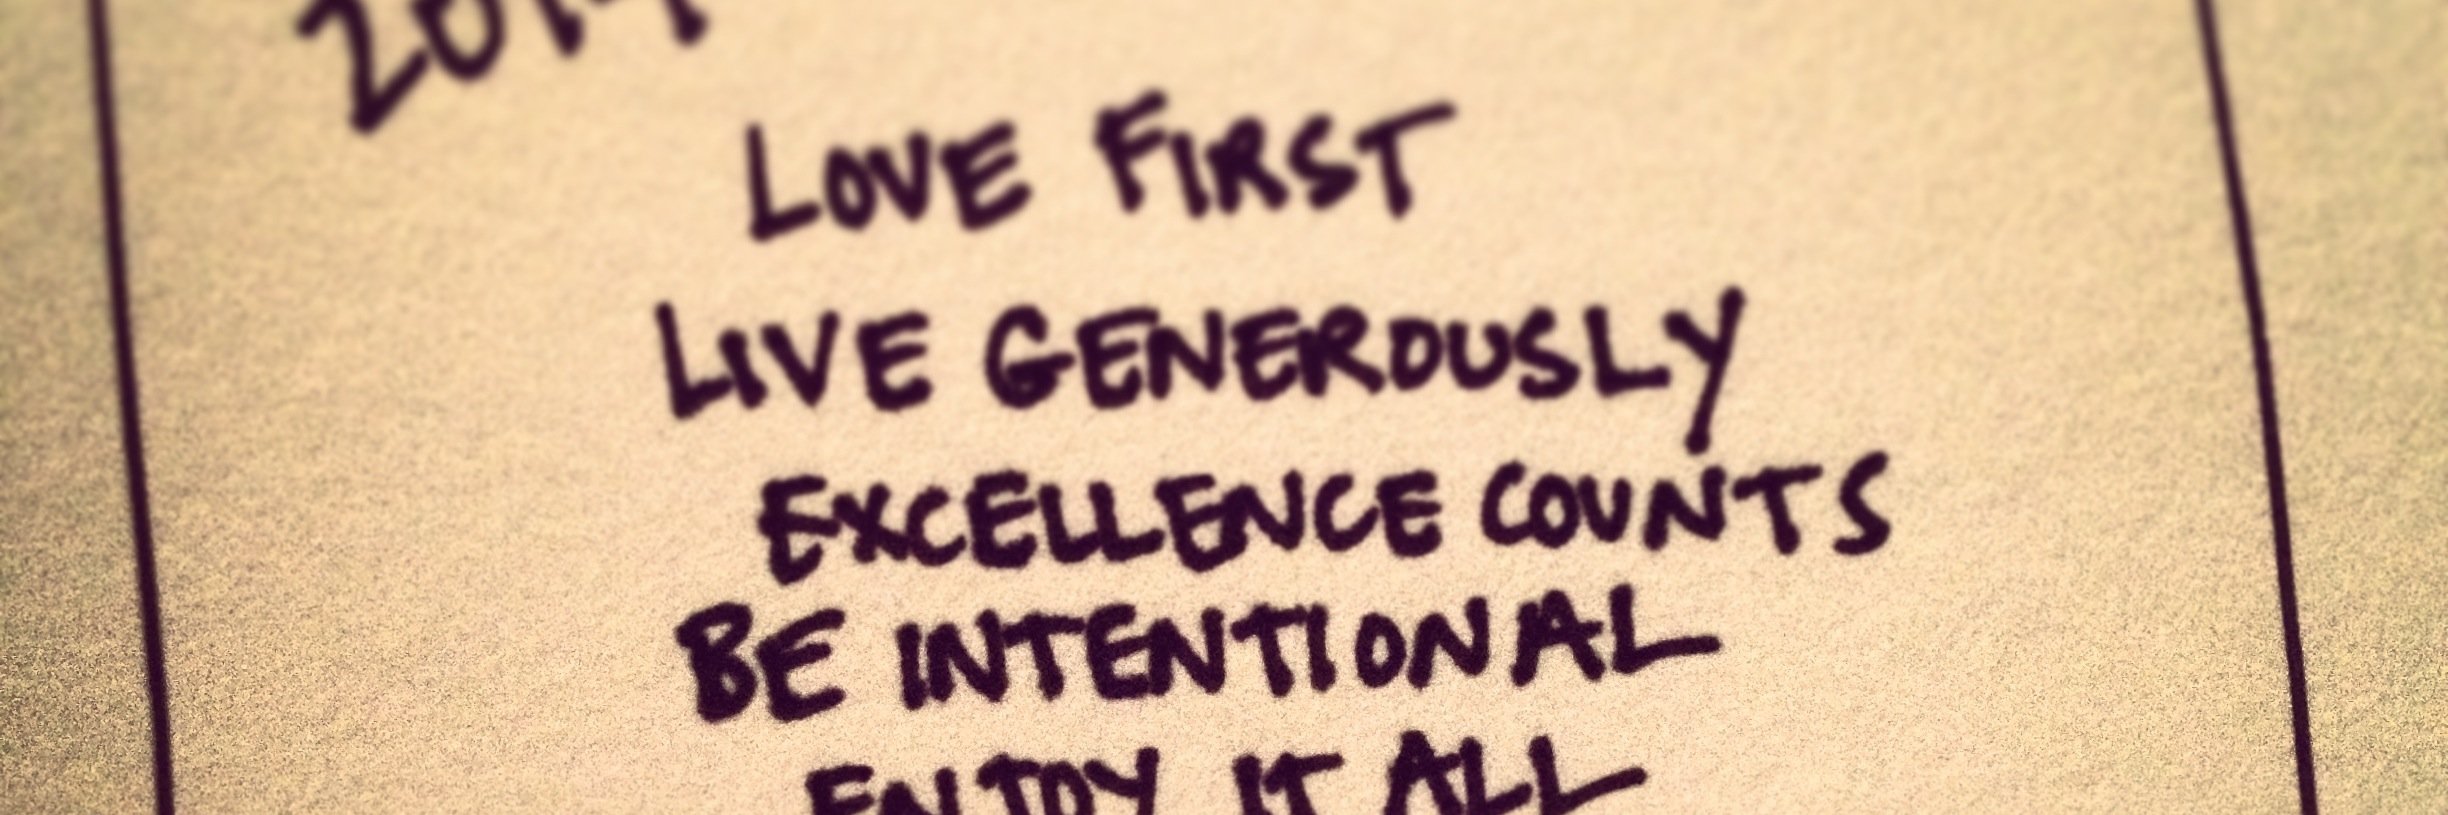 2014
LOVE FIRST
LIVE GENEROUSLY
EXCELLENCE COUNTS
BE INTENTIONAL
ENJOY IT ALL